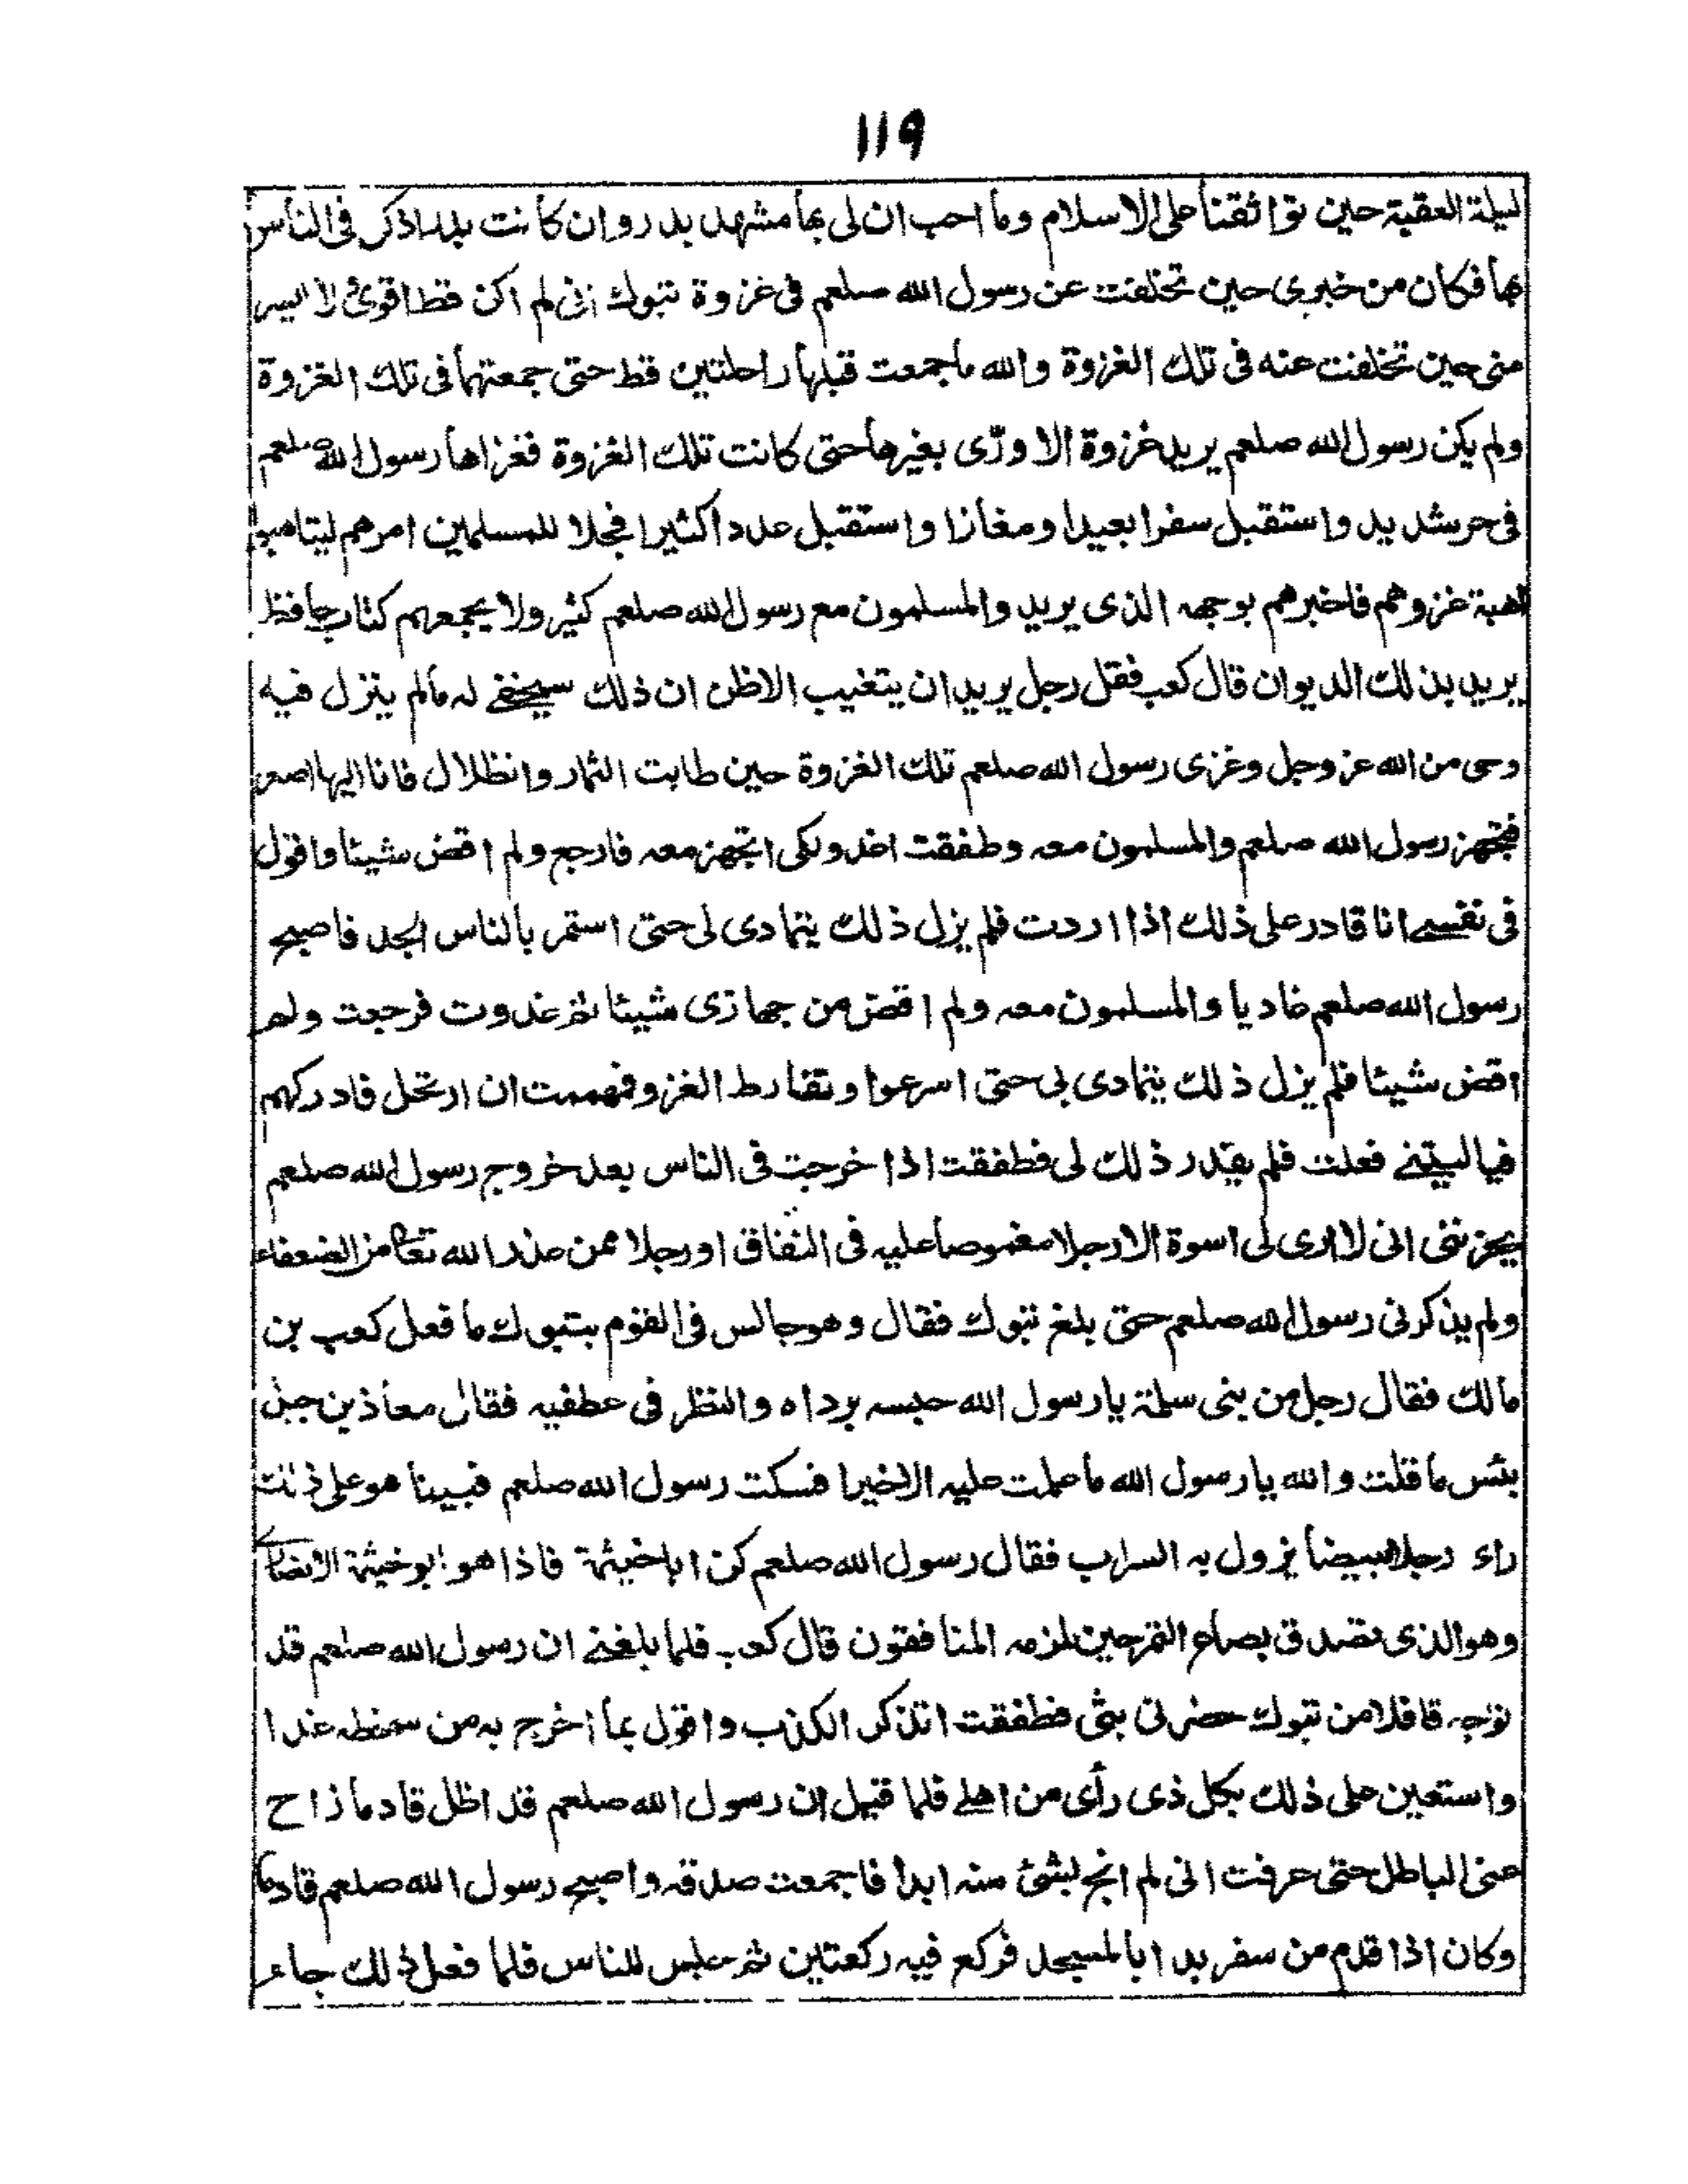 ١١٩
ليلة العقبة حين تواثقنا على الاسلام وما احب ان لى بها مشهد بدر وان كانت بدر اذكر فى الناس
بها فكان من خبرى حين تخلفت عن رسول الله صلعم فى غزوة تبوك انى لم اكن قط اقوى ولا ايسر
منى حين تخلفت عنه فى تلك الغزوة والله ما جمعت قبلها راحلتين قط حتى جمعتهما فى تلك الغزوة
ولم يكن رسول الله صلعم يريد غزوة الا ورّى بغيرها حتى كانت تلك الغزوة فغزاها رسول الله صلعم
فى حر شديد واستقبل سفرا بعيدا ومغازا واستقبل عددا كثيرا فجلا للمسلمين امرهم ليتاهبوا
اهبة غزوهم فاخبرهم بوجهه الذى يريد والمسلمون مع رسول الله صلعم كثير ولا يجمعهم كتاب حافظ
يريد بذلك الديوان قال كعب فقل رجل يريد ان يتغيب الاظن ان ذلك سيخفے له مالم ينزل فيه
وحى من الله عز وجل وغزى رسول الله صلعم تلك الغزوة حين طابت الثمار والظلال فانا اليها اصعر
فتجهز رسول الله صلعم والمسلمون معه وطفقت اغدو لكى اتجهز معه فارجع ولم اقض شيئا واقول
فى نفسے انا قادر على ذلك اذا اردت فلم يزل ذلك يتمادى لى حتى استمر بالناس الجد فاصبح
رسول الله صلعم غاديا والمسلمون معه ولم اقض من جهازى شيئا ثم غدوت فرجعت ولم
اقض شيئا فلم يزل ذلك يتمادى بى حتى اسرعوا وتفارط الغزو فهممت ان ارتحل فادركهم
فيا ليتنے فعلت فلم يقدر ذلك لى فطفقت اذا خرجت فى الناس بعد خروج رسول الله صلعم
يحزننى انى لا ارى لى اسوة الا رجلا مغموصا عليه فى النفاق او رجلا ممن عذر الله تعا من الضعفاء
ولم يذكرنى رسول الله صلعم حتى بلغ تبوك فقال وهو جالس فى القوم بتبوك ما فعل كعب بن
مالك فقال رجل من بنى سلمة يا رسول الله حبسه برداه والنظر فى عطفيه فقال معاذ بن جبل
بئس ما قلت والله يا رسول الله ما علمت عليه الا خيرا فسكت رسول الله صلعم فبينا هو على ذلك
راء رجلا مبيضا يزول به السراب فقال رسول الله صلعم كن ابا خيثمة فاذا هو ابو خيثمة الانصارى
وهو الذى تصدق بصاع التمر حين لمزه المنافقون قال كعب فلما بلغنے ان رسول الله صلعم قد
توجه قافلا من تبوك حضرنى بثى فطفقت اتذكر الكذب واقول بما اخرج به من سخطه غدا
واستعين على ذلك بكل ذى رأى من اهلے فلما قيل ان رسول الله صلعم قد اظل قادما زاح
عنى الباطل حتى عرفت انى لم انج بشئ منه ابدا فاجمعت صدقه واصبح رسول الله صلعم قادما
وكان اذا قدم من سفر بدا بالمسجد فركع فيه ركعتين ثم جلس للناس فلما فعل ذلك جاء